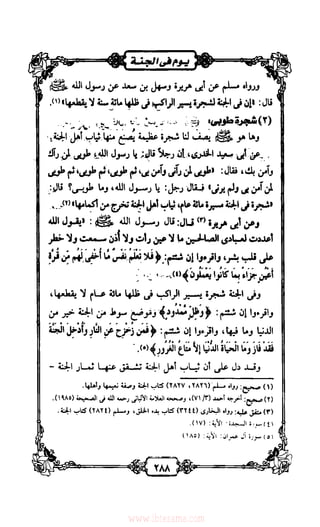 يوم في الجنة
ورواه مسلم عن أبي هريرة وسهل بن سعد عن رسول الله ﷺ
قال: «إن في الجنة لشجرة يسير الراكب في ظلها مائة سنة لا يقطعها»(١).
(٢) شجرة طوبى:
وها هو ﷺ يصف لنا شجرة عظيمة يُصنع منها ثياب أهل الجنة،
عن أبي سعيد الخدري، أن رجلاً قال: يا رسول الله، طوبى لمن رآك
وآمن بك، فقال: «طوبى لمن رآني وآمن بي، ثم طوبى، ثم طوبى، ثم طوبى
لمن آمن بي ولم يرني» فقال رجل: يا رسول الله، وما طوبى؟ قال:
«شجرة في الجنة مسيرة مائة عام، ثياب أهل الجنة تخرج من أكمامها»(٢).
وعن أبي هريرة (٣) قال: قال رسول الله ﷺ : «يقول الله
أعددت لعبادي الصالحين ما لا عين رأت ولا أذن سمعت ولا خطر
على قلب بشر، واقرءوا إن شئتم: ﴿فَلا تَعْلَمُ نَفْسٌ مَّا أُخْفِيَ لَهُم مِّن قُرَّةِ
أَعْيُنٍ جَزَاءً بِمَا كَانُوا يَعْمَلُونَ﴾(٤).
وفي الجنة شجرة يسير الراكب في ظلها مائة عام لا يقطعها،
واقرءوا إن شئتم: ﴿وَظِلٍّ مَّمْدُودٍ﴾ وموضع سوط من الجنة خير من
الدنيا وما فيها، واقرءوا إن شئتم: ﴿فَمَن زُحْزِحَ عَنِ النَّارِ وَأُدْخِلَ الْجَنَّةَ
فَقَدْ فَازَ وَمَا الْحَيَاةُ الدُّنْيَا إِلاَّ مَتَاعُ الْغُرُورِ﴾(٥).
وقد دل على أن ثياب أهل الجنة تشقق عنها ثمار الجنة -
(١) صحيح: رواه مسلم (٢٨٢٦، ٢٨٢٧) كتاب الجنة وصفة نعيمها وأهلها.
(٢) صحيح: أخرجه أحمد (٧١/٣)، وصححه العلامة الألباني رحمه الله في الصحيحة (١٩٨٥).
(٣) متفق عليه: رواه البخاري (٣٢٤٤) كتاب بدء الخلق، ومسلم (٢٨٢٤) كتاب الجنة.
(٤) سورة السجدة: الآية: (١٧).
(٥) سورة آل عمران: الآية: (١٨٥)
٢٨٨
www.ibtesama.com